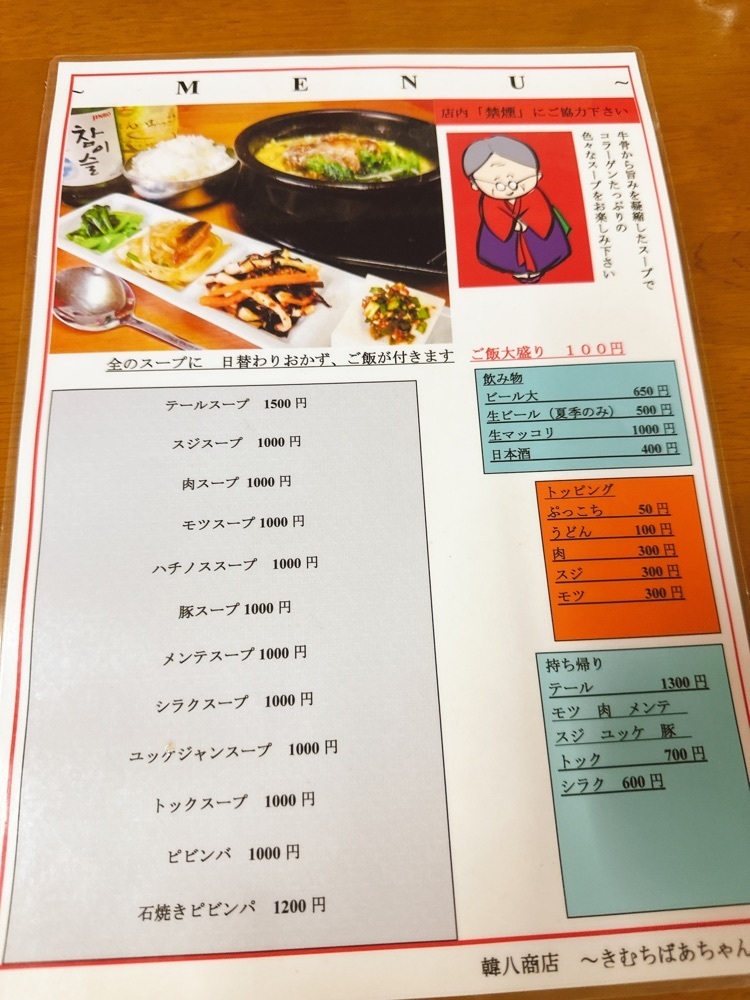 ~ M E N U ~
店内「禁煙」にご協力下さい
JINRO
참이슬
牛骨から旨みを凝縮したスープで
コラーゲンたっぷりの
色々なスープをお楽しみ下さい
全のスープに 日替わりおかず、ご飯が付きます
ご飯大盛り 100円
テールスープ 1500円
スジスープ 1000円
肉スープ 1000円
モツスープ 1000円
ハチノススープ 1000円
豚スープ 1000円
メンテスープ 1000円
シラクスープ 1000円
ユッケジャンスープ 1000円
トックスープ 1000円
ピビンバ 1000円
石焼きピビンパ 1200円
飲み物
ビール大 650円
生ビール（夏季のみ） 500円
生マッコリ 1000円
日本酒 400円
トッピング
ぷっこち 50円
うどん 100円
肉 300円
スジ 300円
モツ 300円
持ち帰り
テール 1300円
モツ 肉 メンテ
スジ ユッケ 豚
トック 700円
シラク 600円
韓八商店 ～きむちばあちゃん